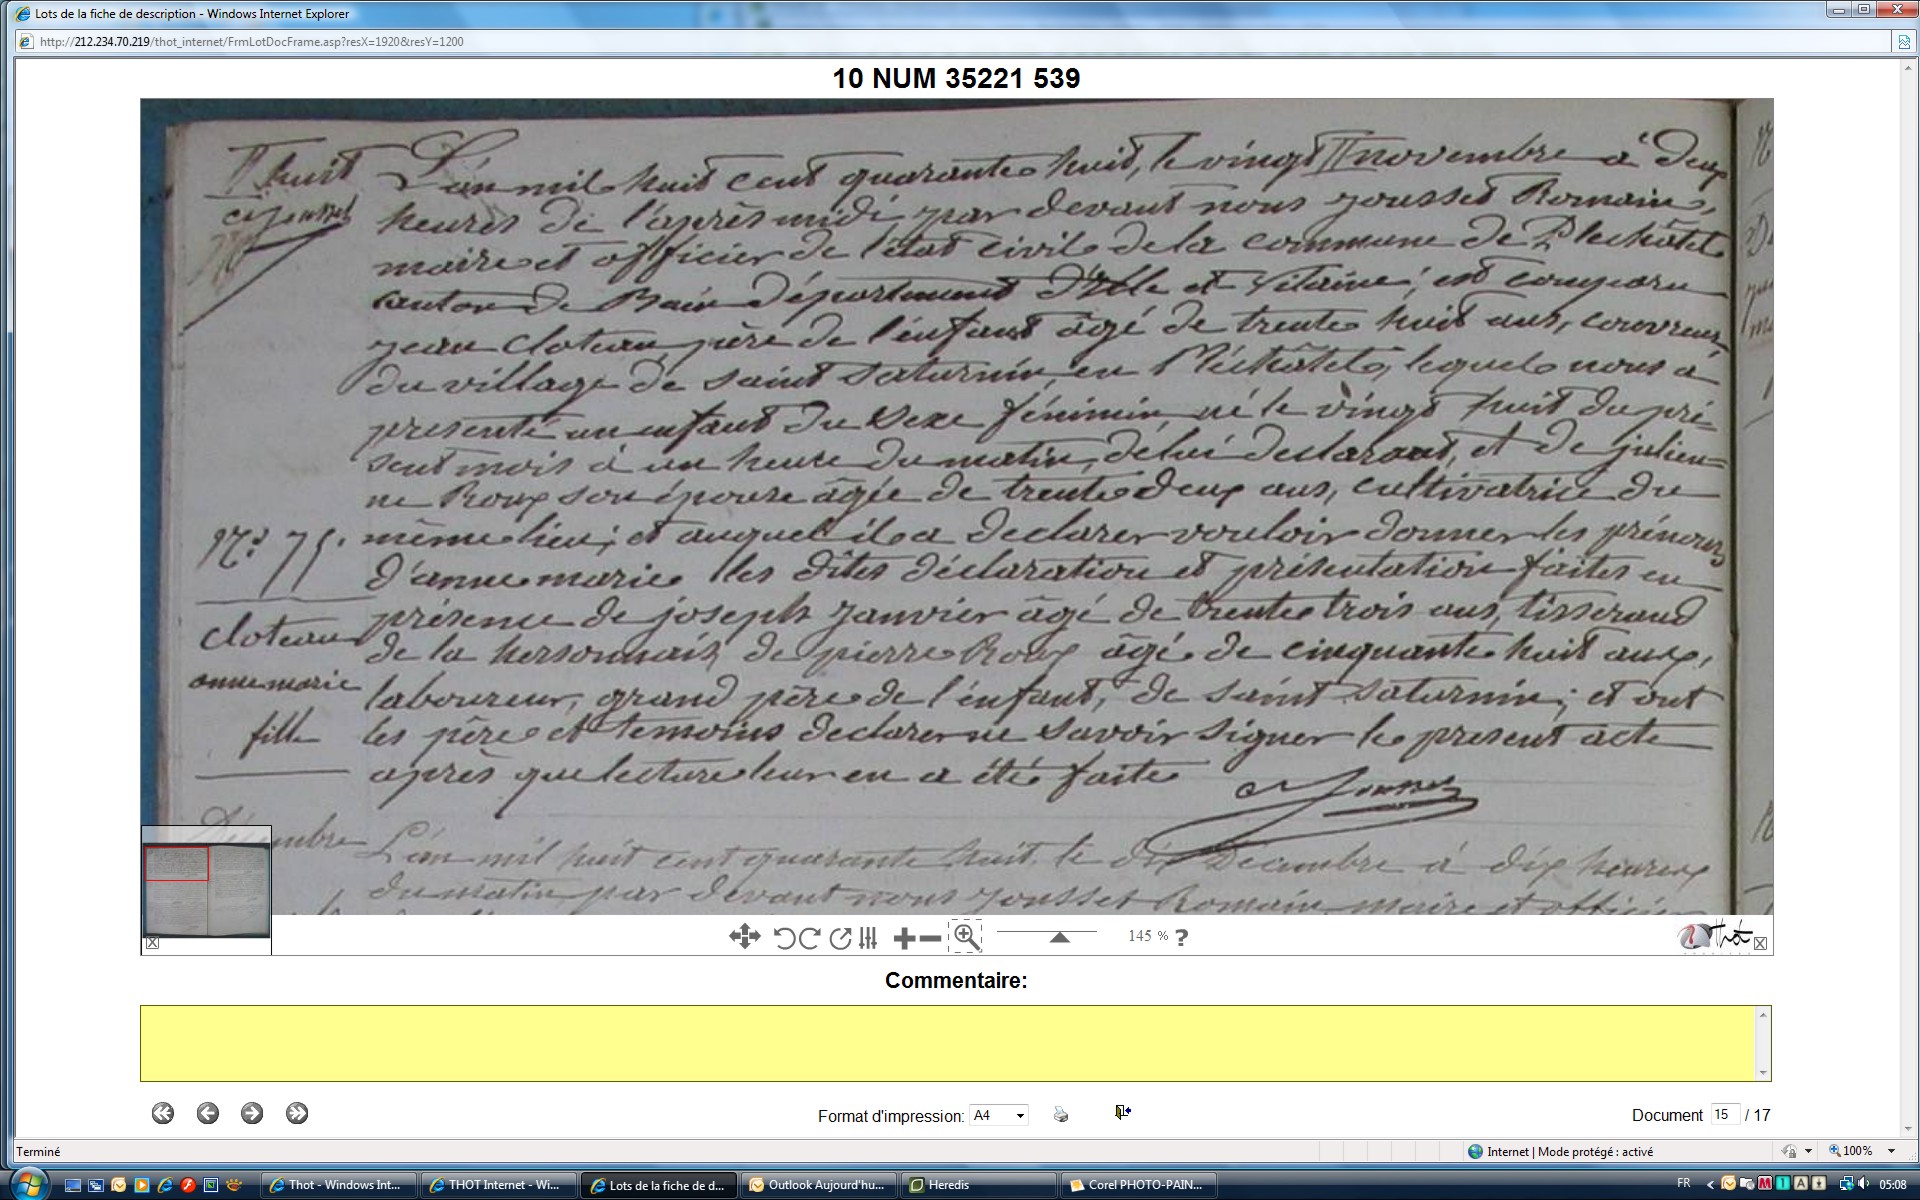 Lots de la fiche de description - Windows Internet Explorer
http://212.234.70.219/thot_internet/FrmLotDocFrame.asp?resX=1920&resY=1200
10 NUM 35221 539
huit
L'an mil huit cent quarante huit, le vingt novembre à deux
heures de l'après midi par devant nous jousset Romain,
maire et officier de l'état civil de la commune de Plechâtel
canton de Bain département d'Ille et Vilaine, est comparu
jean cloteau, père de l'enfant âgé de trente huit ans, couvreur,
du village de saint saturnin, en Pléchâtel, lequel nous a
presenté un enfant du sexe féminin, né le vingt huit du pré-
sent mois à un heure du matin, de lui declarant, et de julien-
ne Roux son épouse âgée de trente deux ans, cultivatrice du
même lieu; et auquel il a declarer vouloir donner les prénoms
d'anne marie les dites déclaration et présentation faites en
présence de joseph janvier âgé de trente trois ans, tisserand
de la hersonnais, de pierre Roux âgé de cinquante huit ans,
laboureur, grand père de l'enfant, de saint saturnin; et ont
les père et temoins declarer ne savoir signer le present acte
après que lecture leur en a été faite
Jousset
N° 75.
cloteau
anne marie
fille
Décembre
L'an mil huit cent quarante huit, le dix Décembre à dix heures
du matin par devant nous jousset Romain maire et officier
145 % ?
Thot
Commentaire:
Format d'impression: A4
Document 15 / 17
Terminé
Internet | Mode protégé : activé
100%
Thot - Windows Int...
THOT Internet - Wi...
Lots de la fiche de d...
Outlook Aujourd'hu...
Heredis
Corel PHOTO-PAIN...
FR
05:08